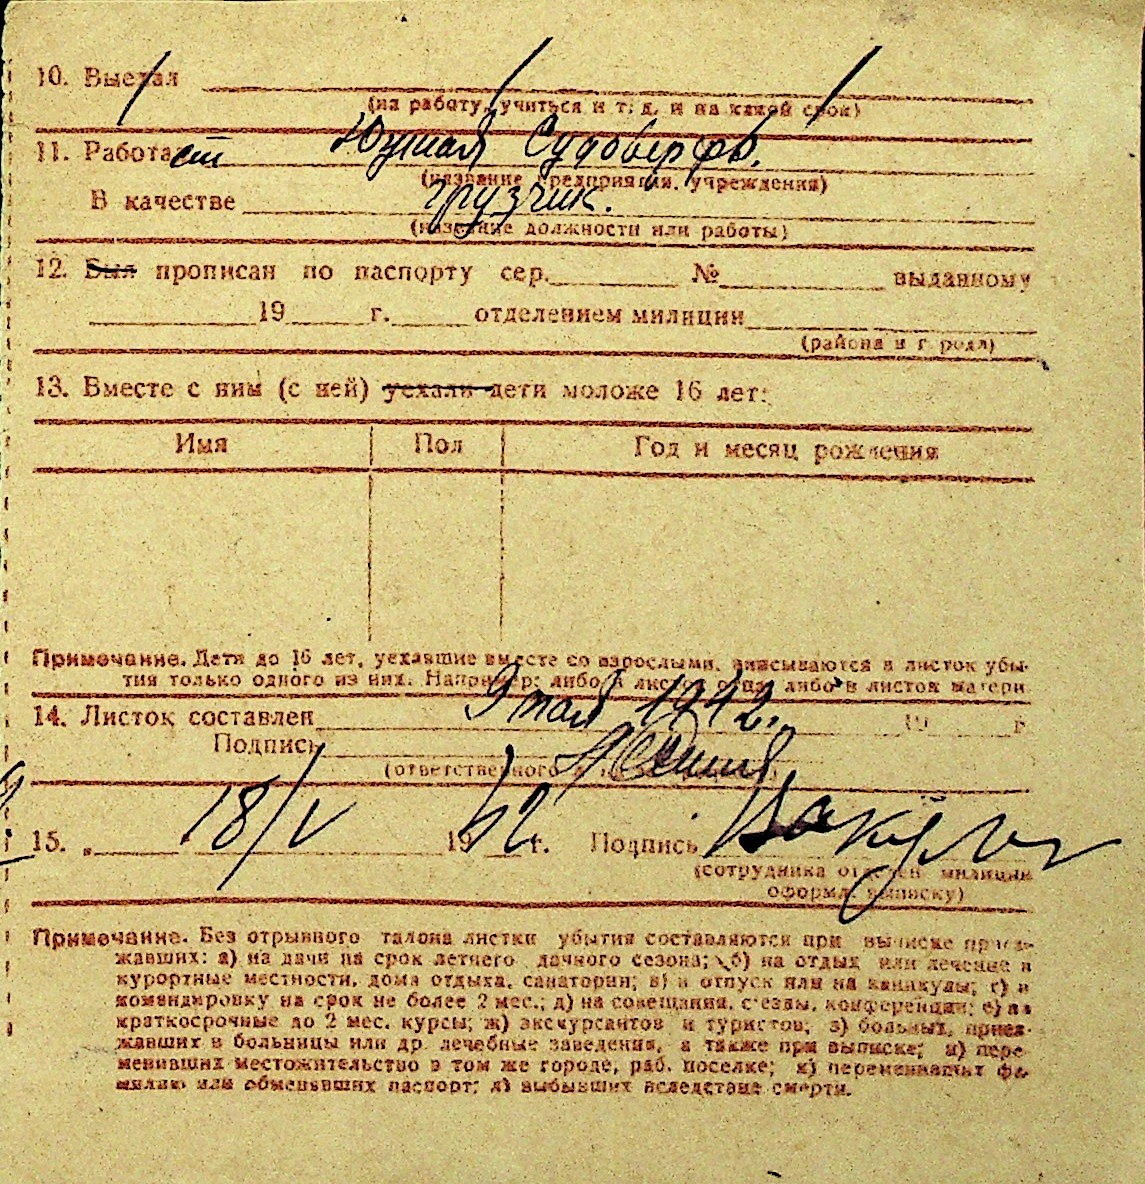 10. Выехал
(на работу, учиться и т. д. и на какой срок)
11. Работает Южная Судоверфь.
(название предприятия, учреждения)
В качестве грузчик.
(название должности или работы)
12. Был прописан по паспорту сер. № выданному
19 г. отделением милиции
(района и города)
13. Вместе с ним (с ней) уехали дети моложе 16 лет:
Имя Пол Год и месяц рождения
Примечание. Дети до 16 лет, уехавшие вместе со взрослыми, вписываются в листок убы-
тия только одного из них. Например: либо в листок отца, либо в листок матери
14. Листок составлен 9 мая 1942. 19 г
Подпись
(ответственного
15. " 18/V 1942 г. Подпись
(сотрудника отделен милиции
оформл выписку)
Примечание. Без отрывного талона листки убытия составляются при выписке приез-
жавших: а) на дачи на срок летнего дачного сезона; б) на отдых или лечение в
курортные местности, дома отдыха, санатории; в) в отпуск или на каникулы; г) в
командировку на срок не более 2 мес.; д) на совещания, съезды, конференции; е) на
краткосрочные до 2 мес. курсы; ж) экскурсантов и туристов; з) больных, приез-
жавших в больницы или др. лечебные заведения, а также при выписке; и) пере-
менивших местожительство в том же городе, раб. поселке; к) переменивших фа-
милию или обменявших паспорт; л) выбывших вследствие смерти.